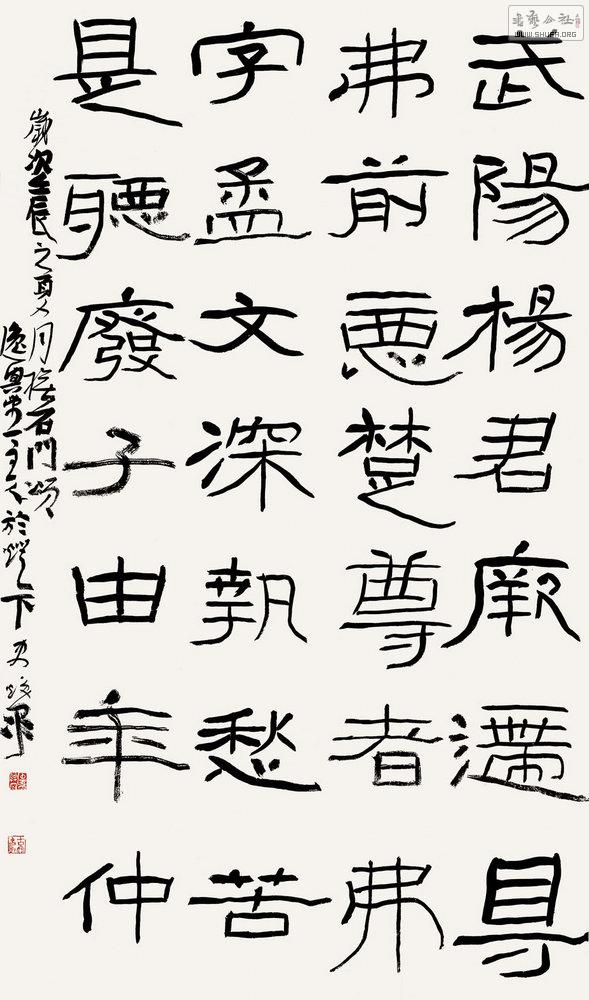 武陽楊君厥遰㝵
弗前惡楚尊者弗
字孟文深執愁苦
是聽廢子由年仲
歲次壬辰之夏月石門頌
逸興於燈下
書藝公社
WWW.SHUFA.ORG